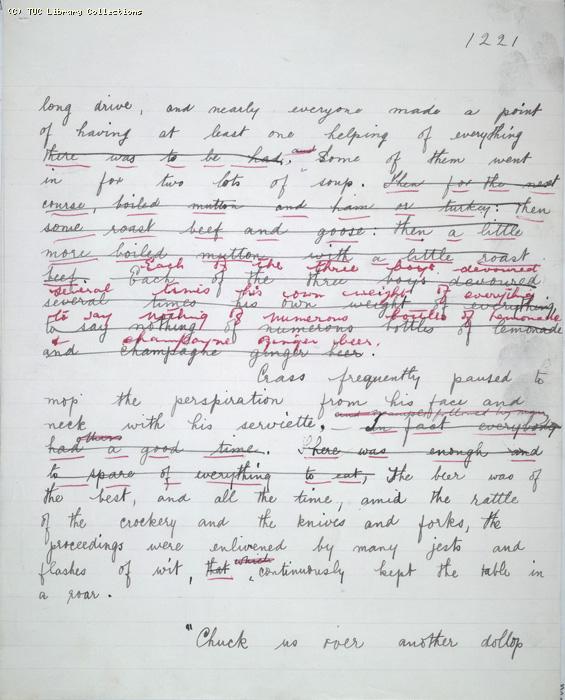 (C) TUC Library Collections
1221
long drive, and nearly everyone made a point
of having at least one helping of everything
there was to be had, and Some of them went
in for two lots of soup. Then for the next
course, boiled mutton and ham or turkey: then
some roast beef and goose: then a little
more boiled mutton with a little roast
Each of the three boys devoured
beef. Each of the three boys devoured
several times his own weight of everything
several times his own weight of everything,
to say nothing of numerous bottles of lemonade
to say nothing of numerous bottles of lemonade
& champagne ginger beer.
and champagne ginger beer.
Crass frequently paused to
mop the perspiration from his face and
neck with his serviette. In fact everybody
others
had a good time. There was enough and
to spare of everything to eat, The beer was of
the best, and all the time, amid the rattle
of the crockery and the knives and forks, the
proceedings were enlivened by many jests and
flashes of wit, that which continuously kept the table in
a roar.
"Chuck us over another dollop